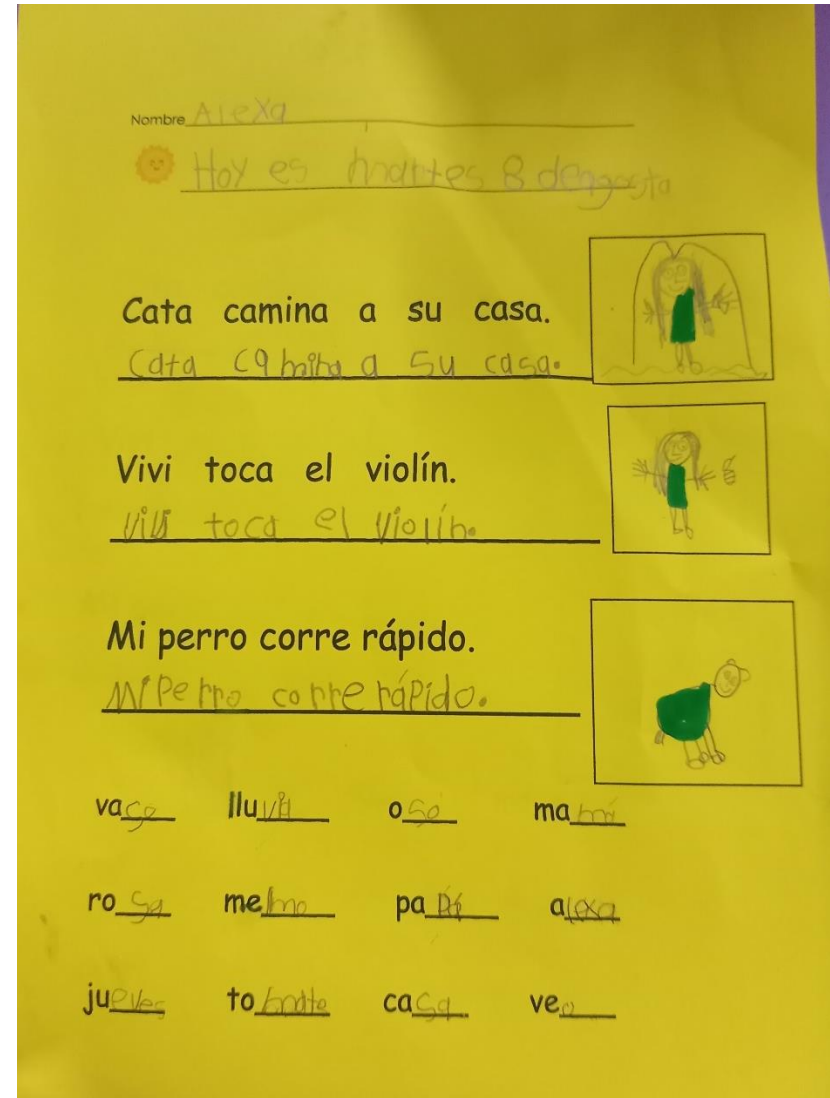 Nombre Alexa
Hoy es martes 8 de agosto
Cata camina a su casa.
Cata camina a su casa.
Vivi toca el violín.
Vivi toca el violín.
Mi perro corre rápido.
Mi perro corre rápido.
vaso lluvia oso mamá
rosa memo papá alexa
jueves tomate casa veo